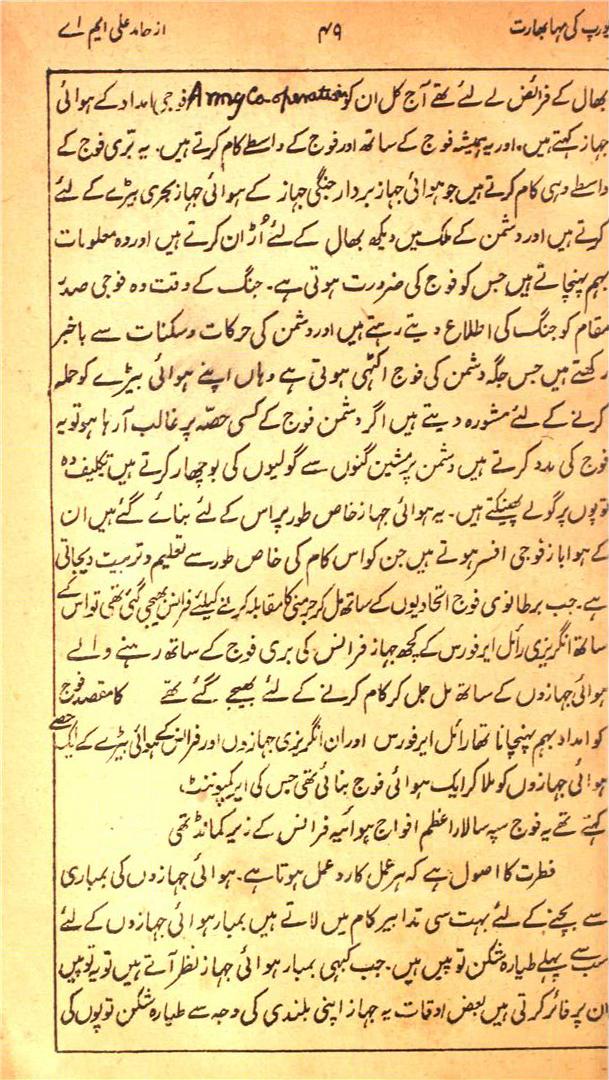 یورپ کی مہا بھارت ۴۹ از حامد علی ایم اے
بھال کے فرائض لے لئے تھے آج کل ان کو Army Co-operation فوجی امداد کے ہوائی
جہاز کہتے ہیں۔ اور یہ ہمیشہ فوج کے ساتھ اور فوج کے واسطے کام کرتے ہیں۔ یہ بّری فوج کے
واسطے وہی کام کرتے ہیں جو ہوائی جہاز بردار جنگی جہاز کے ہوائی جہاز بحری بیڑے کے لئے
کرتے ہیں اور دشمن کے ملک میں دیکھ بھال کے لئے اُڑان کرتے ہیں اور وہ معلومات
بہم پہنچاتے ہیں جس کو فوج کی ضرورت ہوتی ہے۔ جنگ کے وقت وہ فوجی صدر
مقام کو جنگ کی اطلاع دیتے رہتے ہیں اور دشمن کی حرکات و سکنات سے باخبر
رکھتے ہیں جس جگہ دشمن کی فوج اکٹھی ہوتی ہے وہاں اپنے ہوائی بیڑے کو حملہ
کرنے کے لئے مشورہ دیتے ہیں اگر دشمن فوج کے کسی حصّہ پر غالب آ رہا ہو تو یہ
فوج کی مدد کرتے ہیں دشمن پر مشین گنوں سے گولیوں کی بوچھار کرتے ہیں تکلیف دہ
توپوں پر گولے پھینکتے ہیں۔ یہ ہوائی جہاز خاص طور پر اس کے لئے بنائے گئے ہیں ان
کے ہوا باز فوجی افسر ہوتے ہیں جن کو اس کام کی خاص طور سے تعلیم و تربیت دیجاتی
ہے۔ جب برطانوی فوج اتحادیوں کے ساتھ مل کر جرمنی کا مقابلہ کرنے کیلئے فرانس بھیجی گئی تھی تو اس کے
ساتھ انگریزی رائل ایر فورس کے کچھ جہاز فرانس کی بری فوج کے ساتھ رہنے والے
ہوائی جہازوں کے ساتھ مل جل کر کام کرنے کے لئے بھیجے گئے تھے کا مقصد فوج
کو امداد بہم پہنچانا تھا رائل ایر فورس اور ان انگریزی جہازوں اور فرانس کے ہوائی بیڑے کے ایک حصے
ہوائی جہازوں کو ملا کر ایک ہوائی فوج بنائی تھی جس کی ایر کمپوننٹ
کہتے تھے یہ فوج سپہ سالار اعظم افواج ہوائیہ فرانس کے زیر کمانڈ تھی
فطرت کا اصول ہے کہ ہر عمل کا رد عمل ہوتا ہے۔ ہوائی جہازوں کی بمباری
سے بچنے کے لئے بہت سی تدابیر کام میں لاتے ہیں بمبار ہوائی جہازوں کے لئے
سب سے پہلے طیارہ شکن توپیں ہیں۔ جب کبھی بمبار ہوائی جہاز نظر آتے ہیں تو یہ توپیں
ان پر فائر کرتی ہیں بعض اوقات یہ جہاز اپنی بلندی کی وجہ سے طیارہ شکن توپوں کی